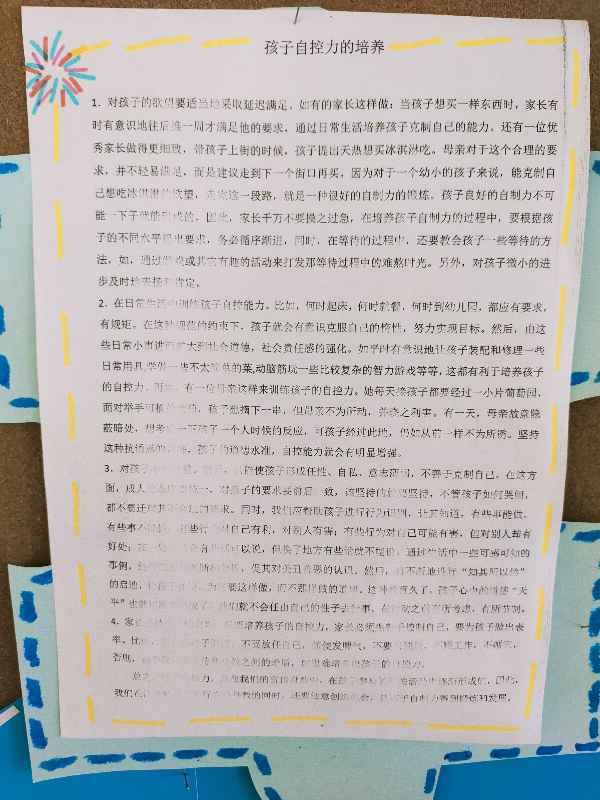 孩子自控力的培养
1．对孩子的欲望要适当地采取延迟满足。如有的家长这样做：当孩子想买一样东西时，家长有
时有意识地往后推一周才满足他的要求，通过日常生活培养孩子克制自己的能力。还有一位优
秀家长做得更细致，带孩子上街的时候，孩子提出天热想买冰淇淋吃。母亲对于这个合理的要
求，并不轻易满足，而是建议走到下一个街口再买，因为对于一个幼小的孩子来说，能克制自
己想吃冰淇淋的欲望，走完这一段路，就是一种很好的自制力的锻炼。孩子良好的自制力不可
能一下子就能形成的，因此，家长千万不要操之过急，在培养孩子自制力的过程中，要根据孩
子的不同水平提出要求，务必循序渐进，同时，在等待的过程中，还要教会孩子一些等待的方
法，如，通过游戏或其它有趣的活动来打发那等待过程中的难熬时光。另外，对孩子微小的进
步及时给表扬和肯定。
2．在日常生活中训练孩子自控能力。比如，何时起床，何时就餐，何时到幼儿园，都应有要求，
有规矩。在这种规范的约束下，孩子就会有意识克服自己的惰性，努力实现目标。然后，由这
些日常小事进而扩大到社会道德，社会责任感的强化。如平时有意识地让孩子装配和修理一些
日常用具,学做一些不太简单的菜,动脑筋玩一些比较复杂的智力游戏等等，这都有利于培养孩子
的自控力。再如，有一位母亲这样来训练孩子的自控力。她每天接孩子都要经过一小片葡萄园，
面对举手可摘的葡萄，孩子想摘下一串，但母亲不为所动，并晓之利害。有一天，母亲故意隐
蔽暗处，想考察一下孩子一个人时候的反应，可孩子经过此地，仍如从前一样不为所诱。坚持
这种抗诱惑的训练，孩子的道德水准，自控能力就会有明显增强。
3．对孩子，容易使孩子形成任性、自私、意志薄弱，不善于克制自己。在这方
面，成人态度应该统一，对孩子的要求要前后一致，该坚持的就要坚持，不管孩子如何哭闹，
都不要迁就其不合理的要求。同时，我们应帮助孩子进行行为识别，让其知道，有些事能做，
有些事不能做；有些行为对自己有利，对别人有害；有些行为对自己可能有害，但对别人却有
好处；在一些场合有些话可以说，但换了地方有些话就不能说。通过生活中一些可感可知的
事例，促其对美丑善恶的认识。然后，再不断地进行“知其所以然”
的启迪，为何要这样做，而不那样做的道理。这种教育久了，孩子心中的道德“天
平”也就，他们就不会任由自己的性子去行事，在行动之前有所考虑，有所节制。
4．家长要培养孩子的自控力，家长必须要善于控制自己，要为孩子做出表
率。比如，不要放任自己，随便发脾气，不要工作，不顾家，
否则，
总之，我们的言传身教中，在孩子形成的，因此，
我们在的同时，还要注意创造机会，让孩子自制力得到锻炼和发展。